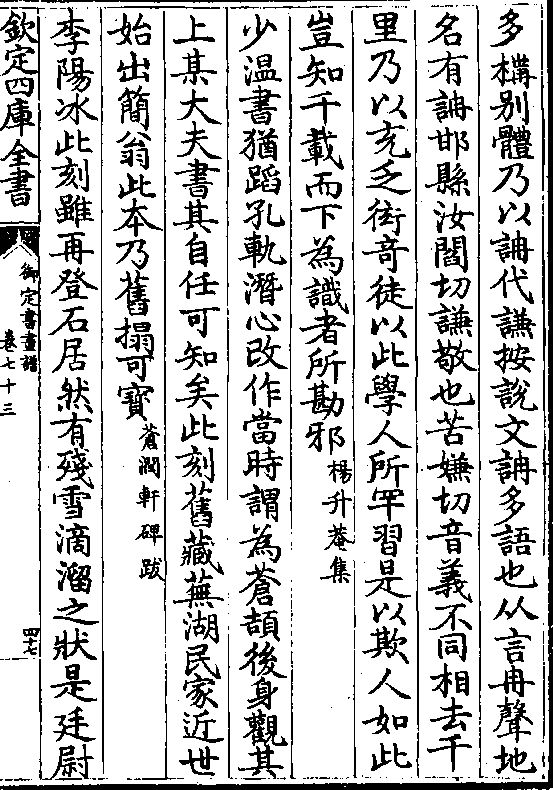 多構别體乃以詽代謙按說文詽多語也从言冉聲地
名有詽邯縣汝閻切謙敬也苦嫌切音義不同相去千
里乃以充乏衒奇徒以此學人所罕習是以欺人如此
豈知千載而下為識者所勘邪楊升菴集
少温書猶蹈孔軌潛心改作當時謂為蒼頡後身觀其
上某大夫書其自任可知矣此刻舊藏蕪湖民家近世
始出簡翁此本乃舊搨可寳蒼潤軒碑跋
李陽冰此刻雖再登石居然有殘雪滴溜之狀是廷尉
欽定四庫全書
御定書畫譜
卷七十三
四七